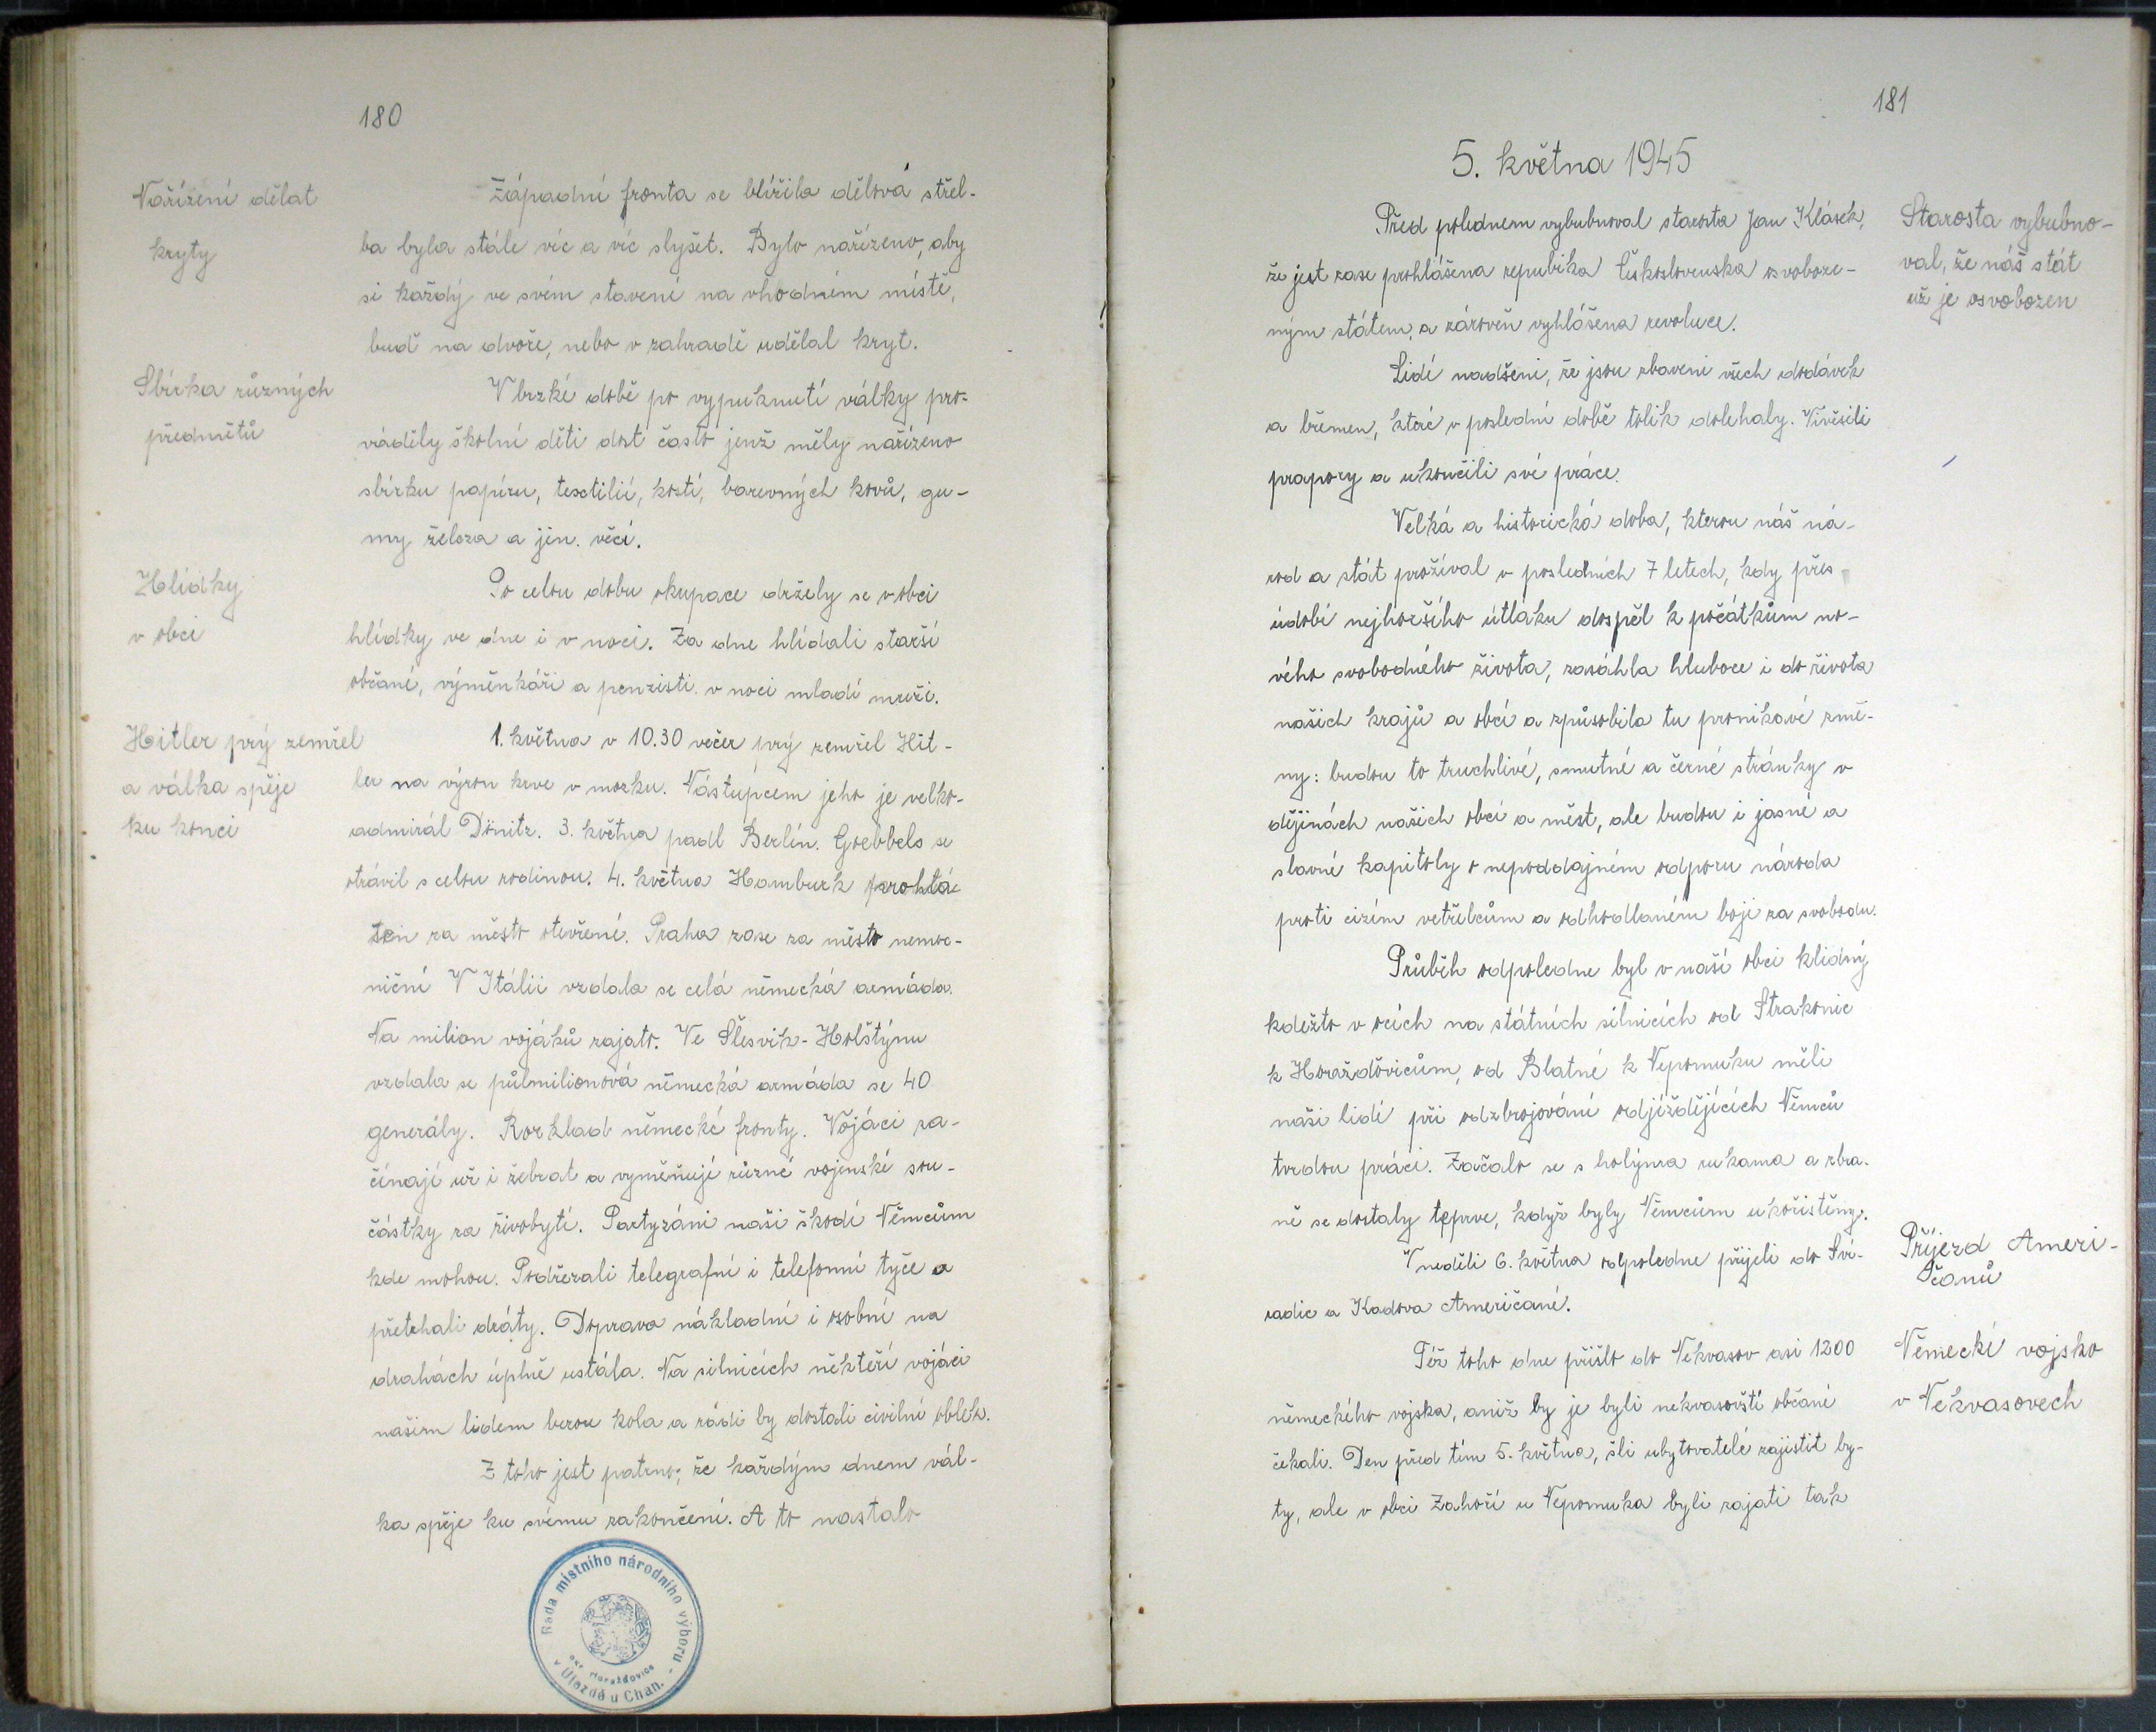 180
Nařízení dělat
kryty
Západní fronta se blížila dělová střel-
ba byla stále víc a víc slyšet. Bylo nařízeno, aby
si každý ve svém stavení na vhodném místě,
buď na dvoře, nebo v zahradě udělal kryt.
Sbírka různých
předmětů
V brzké době po vypuknutí války pro-
váděly školní děti dost často jenž měly nařízeno
sbírku papíru, textilií, kostí, barevných kovů, gu-
my železa a jin. věcí.
Hlídky
v obci
Po celou dobu okupace držely se v obci
hlídky ve dne i v noci. Za dne hlídali starší
občané, výměnkáři a penzisti v noci mladí muži.
Hitler prý zemřel
a válka spěje
ku konci
1. května v 10.30 večer prý zemřel Hit-
ler na výron krve v mozku. Nástupcem jeho je velko-
admirál Dönitz. 3. května padl Berlín. Goebbels se
otrávil s celou rodinou. 4. května Hamburk prohlá-
šen za město otevřené. Praha zase za město nemoc-
niční V Itálii vzdala se celá německá armáda.
Na milion vojáků zajato. Ve Šlesvik-Holštýnu
vzdala se půlmilionová německá armáda se 40
generály. Rozklad německé fronty. Vojáci za-
čínají už i žebrat a vyměňují různé vojenské sou-
částky za živobytí. Partyzáni naši škodí Němcům
kde mohou. Podřezali telegrafní i telefonní tyče a
přetrhali dráty. Doprava nákladní i osobní na
drahách úplně ustála. Na silnicích někteří vojáci
našim lidem berou kola a rádi by dostali civilní oblek.
Z toho jest patrno, že každým dnem vál-
ka spěje ku svému zakončení. A to nastalo
Rada místního národního výboru
v Újezdě u Chan.
okr. Horažďovice
181
5. května 1945
Před polednem vybubnoval starosta Jan Klásek,
že jest zase prohlášena republika Československa osvoboze-
ným státem, a zároveň vyhlášena revoluce.
Starosta vybubno-
val, že náš stát
už je osvobozen
Lidí nadšeni, že jsou zbaveni všech dodávek
a břemen, které v poslední době tolik dolehaly. Vivěsili
prapory a ukončili své práce.
Velká a historická doba, kterou náš ná-
rod a stát prožíval v posledních 7 letech, kdy přes
údobí nejhoršího útlaku dospěl k počátkům no-
vého svobodného života, zasáhla hluboce i do života
našich krajů a obcí a způsobila tu pronikavé změ-
ny: budou to truchlivé, smutné a černé stránky v
dějinách našich obcí a měst, ale budou i jasné a
slavné kapitoly o nepoddajném odporu národa
proti cizím vetřelcům a odhodlaném boji za svobodu.
Průběh odpoledne byl v naší obci klidný
kdežto v ocích na státních silnicích od Strakonic
k Horažďovicům, od Blatné k Nepomuku měli
naši lidí při odzbrojování odjíždějících Němců
tvrdou práci. Začalo se s holýma rukama a zbra-
ně se dostaly teprve, když byly Němcům ukořistěny.
V neděli 6. května odpoledne přijeli do Svi-
radic a Kadova Američané.
Příjezd Ameri-
čanů
Též toho dne přišlo do Nekvasov asi 1200
německého vojska, aniž by je byli nekvasovští občané
čekali. Den před tím 5. května, šli ubytovatelé zajistit by-
ty, ale v obci Zahoří u Nepomuka byli zajati tak
Německé vojsko
v Nekvasovech